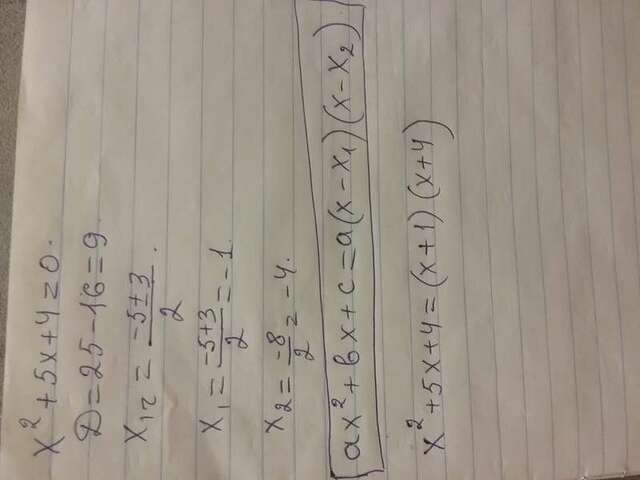 x² + 5x + 4 = 0.
D = 25 - 16 = 9
x₁₂ = (-5 ± 3)/2.
x₁ = (-5+3)/2 = -1.
x₂ = -8/2 = -4.
ax² + bx + c = a(x - x₁)(x - x₂)
x² + 5x + 4 = (x+1)(x+4)